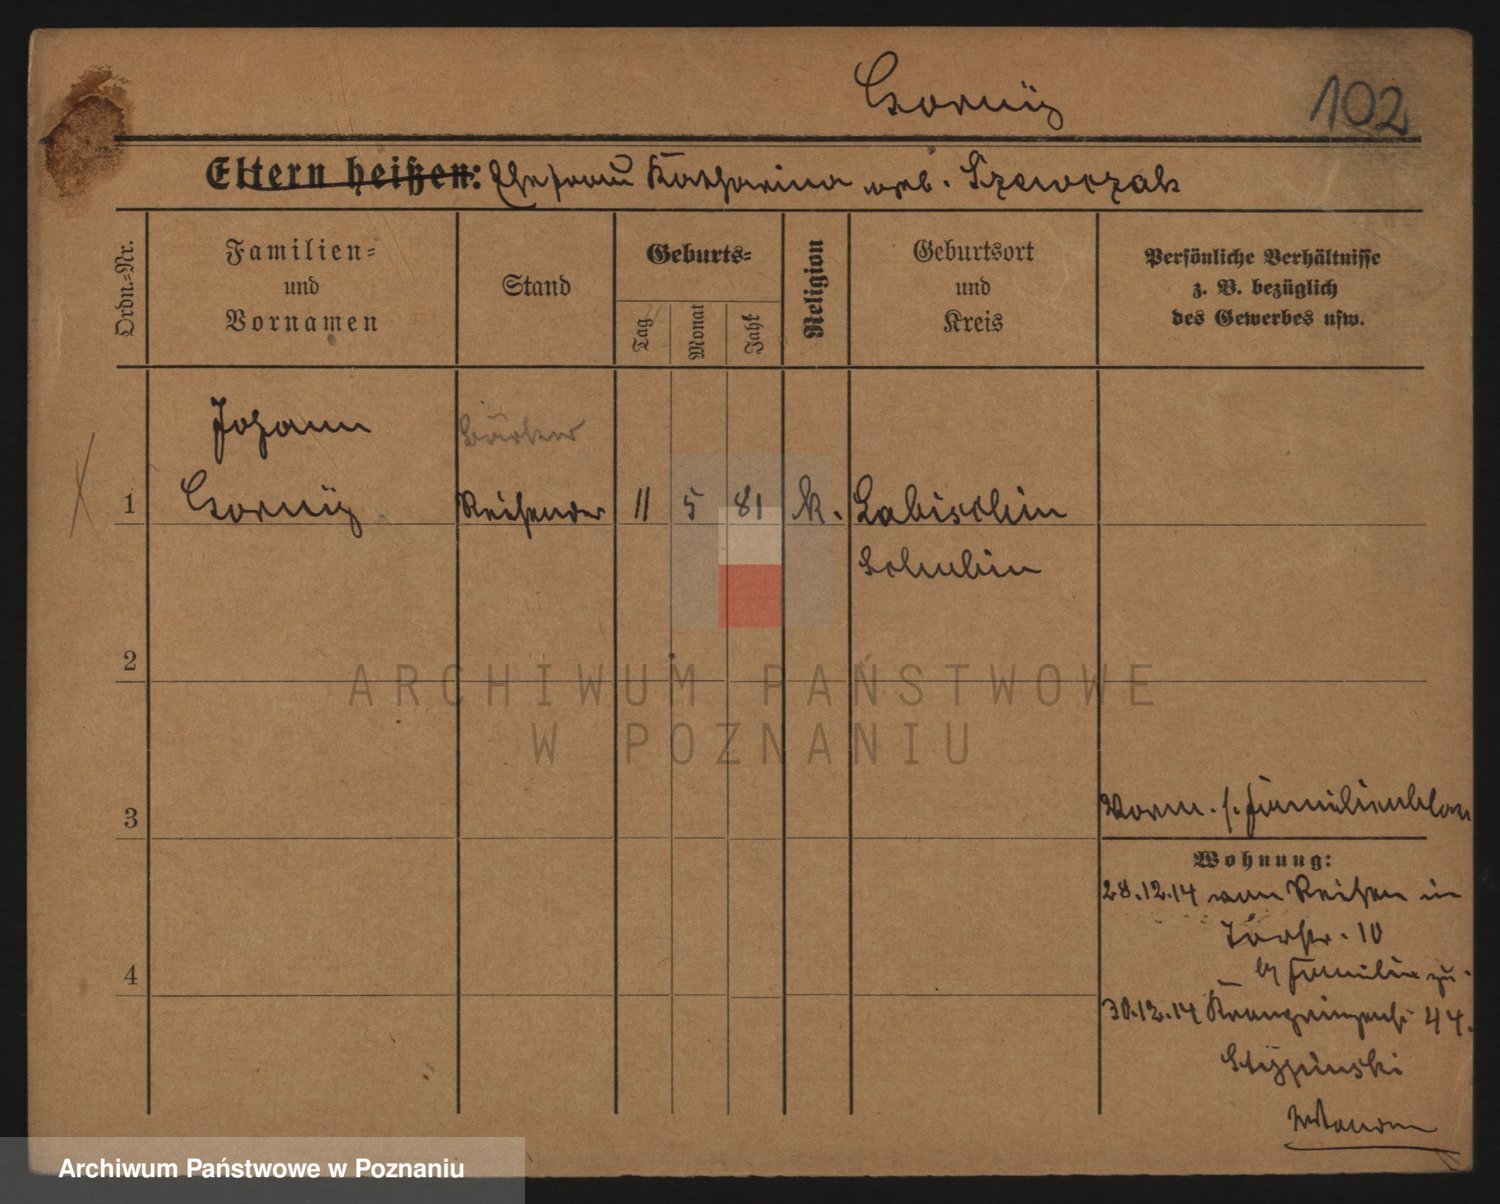 Gornÿ
102
Eltern heißen: Ehefrau Katharina geb. Szewczak
Ordn.-Nr.
Familien-
und
Vornamen
Stand
Geburts-
Tag
Monat
Jahr
Religion
Geburtsort
und
Kreis
Persönliche Verhältnisse
z. B. bezüglich
des Gewerbes usw.
Johann
1 Reisender 11 5 81 k. Labischin
Schubin
2
3
Vorm. s. Familienblatt
Wohnung:
28.12.14 von Reisen in
10
by Familie zu
4
30.12.14 Kronprinzenstr 44.
Stypinski
ARCHIWUM PAŃSTWOWE
W POZNANIU
Archiwum Państwowe w Poznaniu